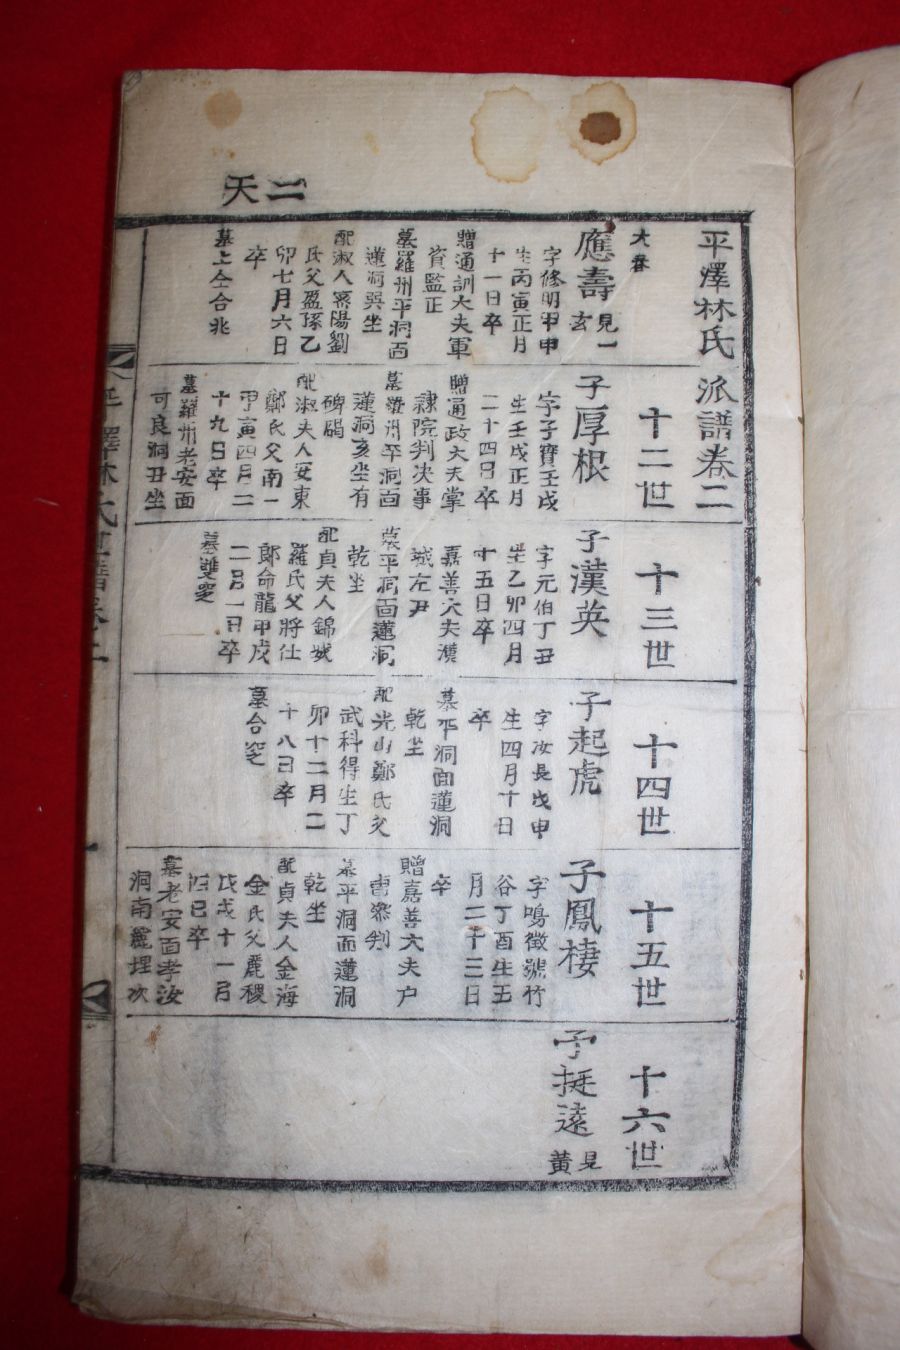 天二
平澤林氏派譜卷二
大春
應壽 見一玄
字修明甲申
生丙寅正月
十一日卒
贈通訓大夫軍
資監正
墓羅州平洞面
蓮洞巽坐
配淑人密陽劉
氏父盈孫乙
卯七月六日
卒
墓上仝合兆
十二世
子厚根
字子寶壬戌
生壬戌正月
二十四日卒
贈通政大夫掌
隷院判决事
墓羅州平洞面
蓮洞亥坐有
碑碣
配淑夫人安東
鄭氏父南一
甲寅四月二
十九日卒
墓羅州老安面
可良洞丑坐
十三世
子漢英
字元伯丁丑
生乙卯四月
十五日卒
嘉善大夫漢
城左尹
墓平洞面蓮洞
乾坐
配貞夫人錦城
羅氏父將仕
郞命龍甲戌
二月一日卒
墓雙窆
十四世
子起虎
字汝長戊申
生四月十日
卒
墓平洞面蓮洞
乾坐
配光山鄭氏父
武科得生丁
卯十二月二
十八日卒
墓合窆
十五世
子鳳棲
字鳴徵號竹
谷丁酉生五
月二十三日
卒
贈嘉善大夫户
曹叅判
墓平洞面蓮洞
乾坐
配貞夫人金海
金氏父麗稷
戊戌十一月
巳卒
墓老安面孝汝
洞南麓埋次
十六世
子挺遠
見黃